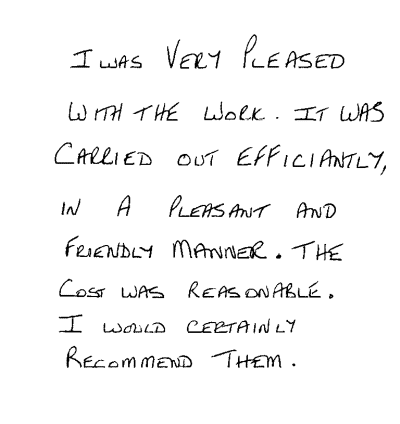 I WAS VERY PLEASED
WITH THE WORK. IT WAS
CARRIED OUT EFFICIANTLY,
IN A PLEASANT AND
FRIENDLY MANNER. THE
COST WAS REASONABLE.
I WOULD CERTAINLY
RECOMMEND THEM.